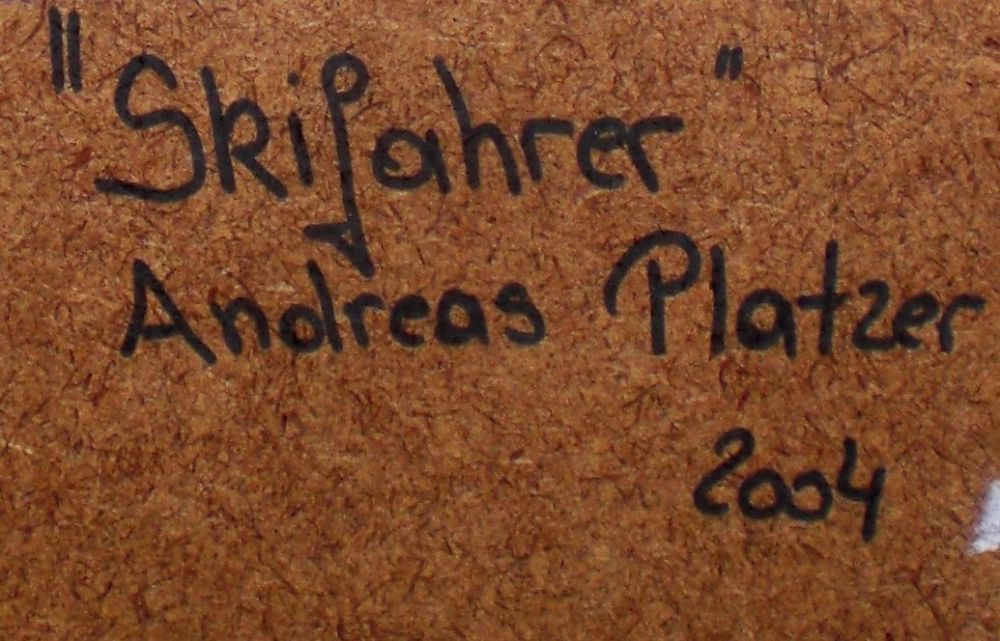 "Skifahrer"
Andreas Platzer
2004